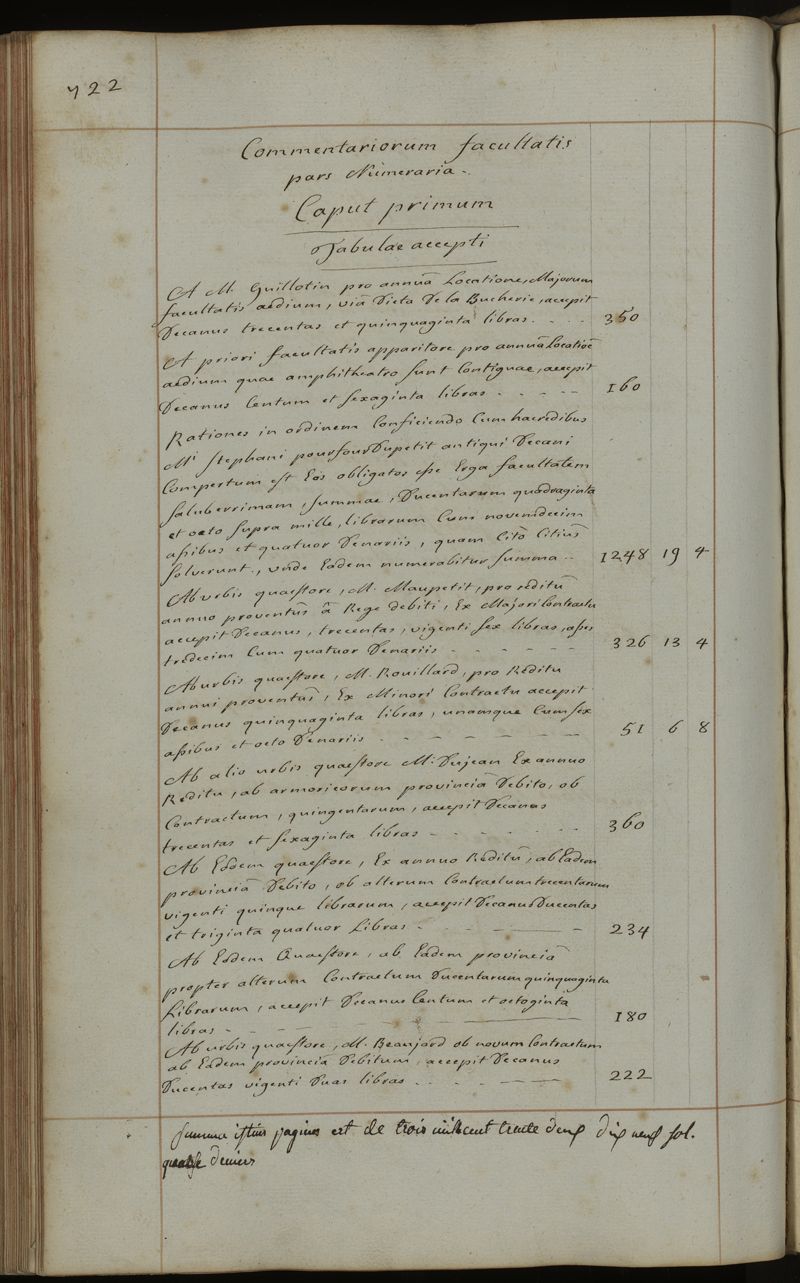 722
Commentariorum facultatis
pars Numeraria -
Caput primum
Tabulae accepti
A M. Guillotin pro annuâ Locatione, Majorum
facultatis aedium, viâ Dicta De la Bucherie, accepit
Decanus trecentas et quinquaginta libras . - - . 350
A priori facultatis apparitore pro annuâ Locatioē
aedium quae amphitheatro sunt Contiguae, accepit
Decanus Centum et sexaginta libras . - - - - 160
Rationes in ordinem Conficiendo Cum haeredibus
Mi Stephani pourfour Dupetit antiqui Decani
Compertum est Eos obligatos esse Erga facultatem
saluberrimam, summae, Ducentarum quadraginta
et octo supra mille, librarum Cum novemdecim
assibus et quatuor Denariis, quam Citò Citiùs
solverunt., unde Eadem numerabitur summa .. 1248 19 4
Ab urbis quaestore, M. Maupetit, pro reditû
annuo proventûs à Rege debiti, Ex Majori Contractu
accepit Decanus, trecentas, vigenti sex libras, asses
tredecim Cum quatuor Denariis - - - - - - 326 13 4
Ab urbis quaestore, M. Rouillard, pro Reditu
annui proventûs, Ex Minori Contractu accepit
Decanus quinquaginta libras, unamque Cum sex
assibus et octo Denariis - - - - - - - 51 6 8
Ab alio urbis quaestore M. Dujean Ex annuo
Reditu, ab armoricorum provinciâ Debito, ob
Contractum, quingentarum, accepit Decanus
trecentas et sexaginta libras - - - - - - - 360
Ab Eodem quaestore, Ex annuo Reditû, ab Eadem
provinciâ Debito, ob alterum Contractum trecentarum
vigenti quinque librarum, accepit Decanus Ducentas
et triginta quatuor Libras - - - - - 234
Ab Eodem Quaestore, ab Eadem provinciâ
propter alterum Contractum Ducentarum quinquaginta
Librarum, accepit Decanus Centum et octoginta
libras - - - - - - - - 180
Ab urbis quaestore, M. Beaujard ob novum Contractum
ab Eadem provinciâ Debitum, accepit Decanus
Ducentas vigenti Duas libras - - - - - - 222
summa istius paginæ est de trois mill cent trente deux dix neuf sol.
quatre deniers